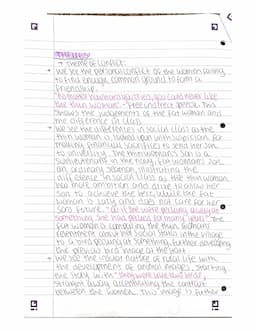 THEMES
→ theme of conflict.
→ We see the personal conflict of the women failing
to find enough common ground to form a
friendship.
"No matter how hard you tried, you could never like
the thin woman." - Free indirect speech. This
shows the judgements of the fat woman and
the difference in class
→ We see the differences in social class as the
thin woman is looked upon with suspicion for
making financial sacrifices to send her son
to university. The thin woman's son is a
sublieutenant in the navy, fat woman's son
an ordinary seaman, illustrating the
difference in social class as the thin woman
has more ambition and drive to allow her
son to achieve the best, while the fat
woman is lazy and does not care for her
sons future. "as if she were pecking away at
something she had played for many years" The
fat woman is comparing the thin woman's
resentment about her social status in the village
to a bird pecking at something, further developing
the previous bird image at the start.
→ We see the cruel nature of rural life with
the development of animal images, starting
the story with "they were like two birds",
straight away accentuating the contrast
between the women. This image is further